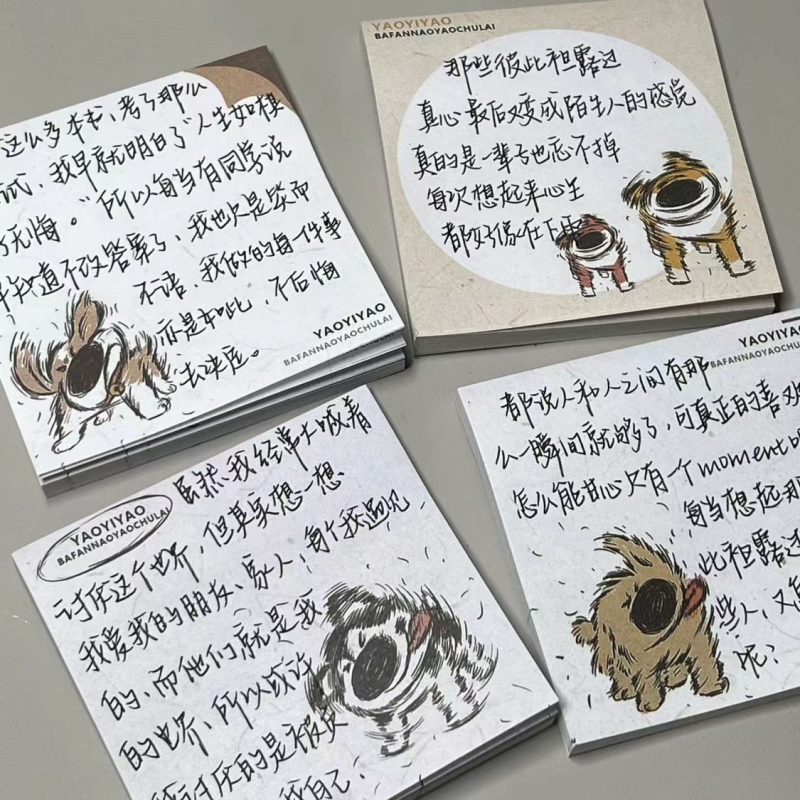 这么多本书、考了那么
试，我早就明白了“人生如棋
了无悔。”所以每当有同学说
知道不改答案了，我也只是笑而
不语，我做的每一件事
亦是如此，不后悔
去决定。
YAOYIYAO
BAFANNAOYAOCHULAI
YAOYIYAO
BAFANNAOYAOCHULAI
那些彼此袒露过
真心最后又变成陌生人的感觉
真的是一辈子也忘不掉
每次想起来心里
都好像在下雨
YAOYIYAO
BAFANNAOYAOCHULAI
虽然我经常大喊着
讨厌这个世界，但其实想一想
我爱我的朋友、家人，每个我遇见
的，而他们就是我
的世界，所以或许
我讨厌的是
我自己.
YAOYIYAO
BAFANNAOYAOCHULAI
都说人和人之间有那
么一瞬间就够了，可真正的喜欢
怎么能甘心只有一个moment
每当想起那
此袒露过
些人，又
呢？